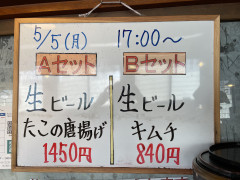 5/5(月) 17:00～
Aセット
生ビール
たこの唐揚げ
1450円
Bセット
生ビール
キムチ
840円